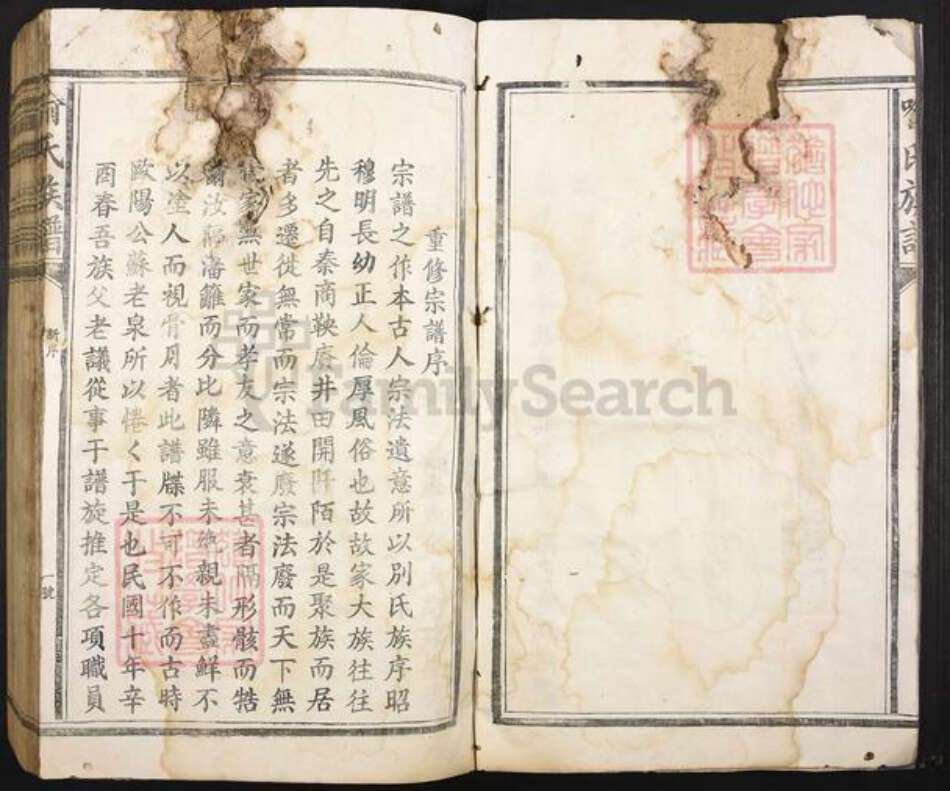 重修宗譜序
宗譜之作本古人宗法遺意所以別氏族序昭
穆明長幼正人倫厚風俗也故故家大族往往
先之自秦商鞅廢井田開阡陌於是聚族而居
者多遷徙無常而宗法遂廢宗法廢而天下無
家無世家而孝友之意衰甚者隔形骸而牲
爾汝藩籬而分比隣雖服未絕親未盡鮮不
以塗人而視骨月者此譜牒不可不作而古時
歐陽公蘇老泉所以惓く于是也民國十年辛
酉春吾族父老議從事于譜旋推定各項職員
氏族譜
新序
一號
FamilySearch